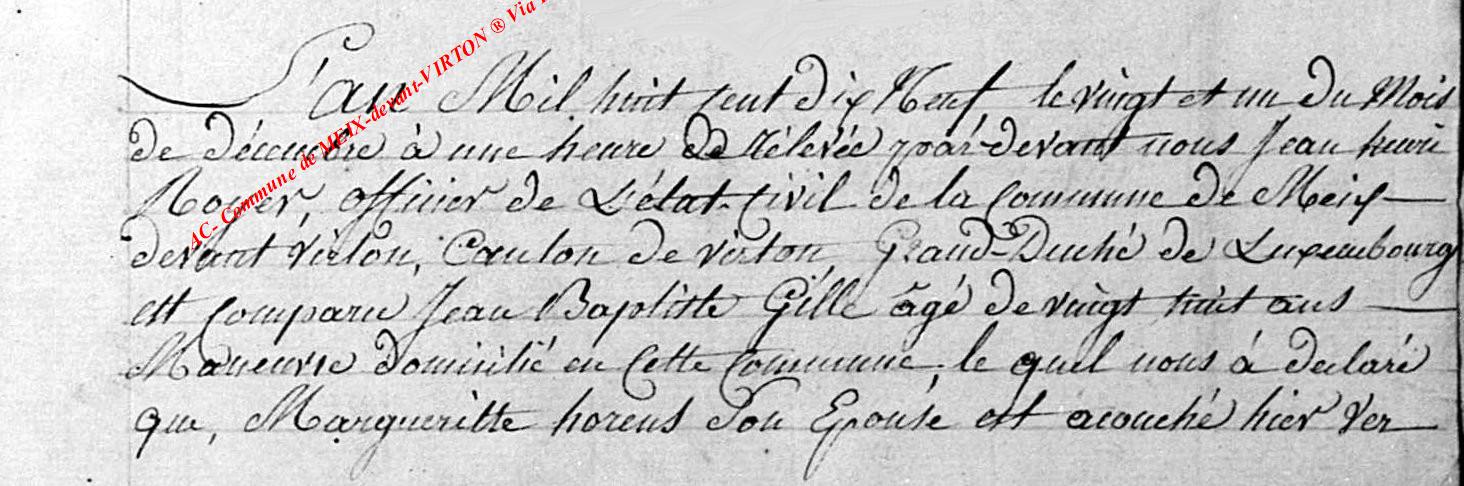 AC- Commune de MEIX-devant-VIRTON ® Via
L'an Mil huit cent dix Neuf le vingt et un du Mois
de décembre à une heure de rélevée par-devant nous Jean henri
Royer, officier de L'état-civil de la Commune de Meix—
devant virton, Canton de virton Grand-Duché de Luxembourg
est Comparu Jean Baptiste Gille âgé de vingt huit ans —
Maneuvre domicilié en Cette Commune, le quel nous à declaré
que, Margueritte horens Son Epouse est acouché hier Ver